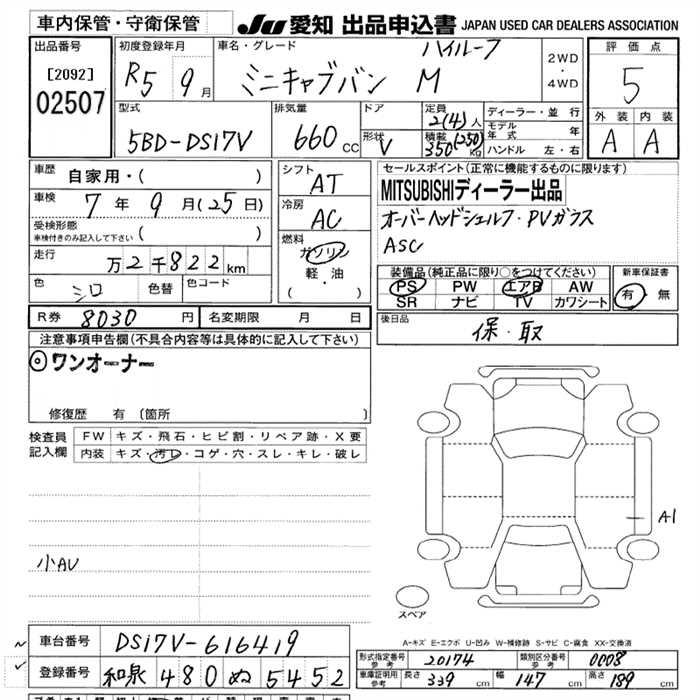 車内保管・守衛保管
JU 愛知 出品申込書 JAPAN USED CAR DEALERS ASSOCIATION
出品番号
[2092]
02507
初度登録年月
R5 9月
車名・グレード
ハイルーフ
ミニキャブバン M
2WD
・
4WD
評価点
5
外装 内装
A A
型式
5BD-DS17V
排気量
660 cc
ドア
形状
V
定員
2(4)人
積載
350(250)kg
ディーラー・並行
モデル年式 年
ハンドル 左・右
車歴
自家用・( )
車検
7年 9月(25日)
受検形態
車検付きのみ記入して下さい ( )
走行
万2千822km
色
シロ
色替
色コード
シフト
AT
冷房
AC
燃料
ガソリン
軽・油
( )
セールスポイント(正常に機能するものに限ります)
MITSUBISHIディーラー出品
オーバーヘッドシェルフ・PVガラス
ASC
装備品(純正品に限り○をつけてください)
PS PW エアB AW
SR ナビ TV カワシート
新車保証書
有・無
R券 8030円
名変期限 月 日
後日品
保・取
注意事項申告欄(不具合内容等は具体的に記入して下さい)
◎ワンオーナー
修復歴 有(箇所 )
検査員記入欄
FW キズ・飛石・ヒビ割・リペア跡・X要
内装 キズ・汚レ・コゲ・穴・スレ・キレ・破レ
小AU
A1
スペア
A-キズ E-エクボ U-凹み W-補修跡 S-サビ C-腐食 XX-交換済
車台番号
DS17V-616419
登録番号
和泉 480 ぬ 5452
形式指定番号
参考
20174
類別区分番号
参考
0008
車庫証明用
参考
長さ 339cm 幅 147cm 高さ 189cm